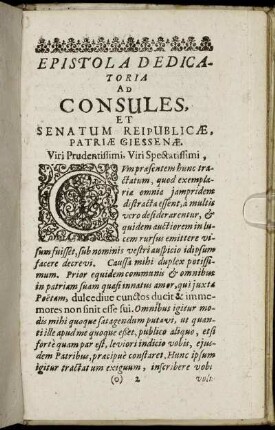 EPISTOLA DEDICA-
TORIA
AD
CONSULES,
ET
SENATUM REIPUBLICÆ,
PATRIÆ GIESSENÆ.
Viri Prudentissimi, Viri Spectatissimi,
CUm præsentem hunc tra-
ctatum, quod exempla-
ria omnia jampridem
distracta essent, à multis
verò desiderarentur, &
quidem auctiorem in lu-
cem rursus emittere vi-
sum fuisset, sub nominis vestri auspicio id ipsum
facere decrevi. Caussa mihi duplex potissi-
mum. Prior equidem communis & omnibus
in patriam suam quasi innatus amor, qui juxta
Poëtam, dulcedine cunctos ducit & imme-
mores non finit esse sui. Omnibus igitur mo-
dis mihi quoque satagendum putavi, ut quan-
tillè apud me quoque esset, publico aliquo, etsi
fortè quam par est, leviori indicio vobis, ejus-
dem Patribus, præcipuè constaret. Hunc ipsum
igitur tractatum exiguum, inscribere vobi
(o) 2 volu-